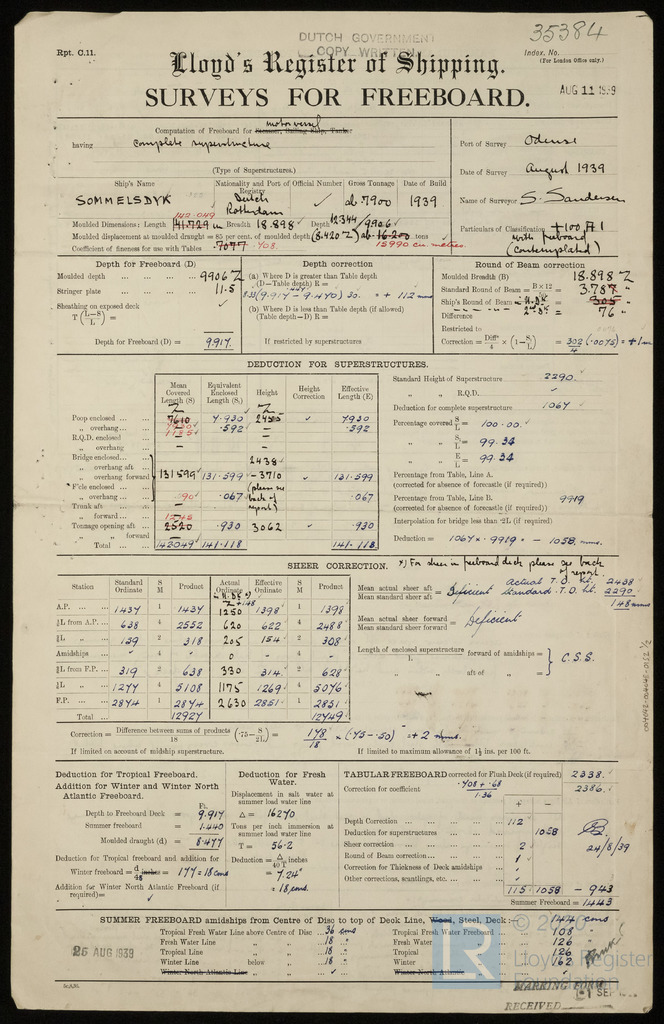 DUTCH GOVERNMENT
COPY WRITTEN
35384
Rpt. C.11.
Index. No.
(For London Office only.)
Lloyd's Register of Shipping.
AUG 11 1939
SURVEYS FOR FREEBOARD.
motorvessel
Computation of Freeboard for Steamer, Sailing Ship, Tanker
having complete superstructure
(Type of Superstructures.)
Port of Survey Odense
Date of Survey August 1939
Name of Surveyor S. Sandersen
Particulars of Classification +100 A1
with freeboard
(contemplated)
Ship's Name
Nationality and Port of Registry
Official Number
Gross Tonnage
Date of Build
SOMMELSDYK
Dutch
Rotterdam
7900
1939
142.049
Moulded Dimensions: Length 141.729 m Breadth 18.898 Depth 12344/9906
Moulded displacement at moulded draught = 85 per cent. of moulded depth (8.420) 16.200 tons
Coefficient of fineness for use with Tables .7077 .708 15990 cu. metres.
Depth for Freeboard (D)
Moulded depth 9906
Stringer plate 11.5
Sheathing on exposed deck
T (L-S/L) =
Depth for Freeboard (D) = 9.917
Depth correction
(a) Where D is greater than Table depth
(D-Table depth) R =
8.33 (9.917 - 9.470) 30. = + 112 mms
(b) Where D is less than Table depth (if allowed)
(Table depth-D) R =
If restricted by superstructures
Round of Beam correction
Moulded Breadth (B) 18.898
Standard Round of Beam = B×12/50 = 3.787
Ship's Round of Beam = 305
Difference 76
Restricted to
Correction = Diff/4 × (1-S1/L) = 302/4 (.0075) = +1
DEDUCTION FOR SUPERSTRUCTURES.
Mean Covered Length (S)
Equivalent Enclosed Length (S1)
Height
Height Correction
Effective Length (E)
Poop enclosed 7610 7.930 2485 7930
" overhang 1185 .592 .592
R.Q.D. enclosed
" overhang
Bridge enclosed 2438
" overhang aft
" overhang forward 131599 131.599 3710 131.599
F'cle enclosed (please see
" overhang 90 .067 back of .067
Trunk aft report)
" forward 1245
Tonnage opening aft 2520 .930 3062 .930
" " forward
Total 142049 141.118 141.118
Standard Height of Superstructure 2290.
" " R.Q.D.
Deduction for complete superstructure 1067
Percentage covered S/L = 100.00
" S1/L = 99.34
" E/L = 99.34
Percentage from Table, Line A.
(corrected for absence of forecastle (if required))
Percentage from Table, Line B. 9919
(corrected for absence of forecastle (if required))
Interpolation for bridge less than .2L (if required)
Deduction = 1067 × .9919 = - 1058 mms.
SHEER CORRECTION.
x) For sheer in freeboard deck please see back
of report.
Station
Standard Ordinate
S M
Product
Actual Ordinate
Effective Ordinate
S M
Product
A.P. 1437 1 1437 1250 1398 1 1398
1/6 L from A.P. 638 4 2552 620 622 4 2488
1/3 L " 159 2 318 205 154 2 308
Amidships 4 0 4
1/3 L from F.P. 319 2 638 330 314 2 628
1/6 L " 1277 4 5108 1175 1269 4 5076
F.P. 2874 1 2874 2630 2851 1 2851
Total 12927 12749
Mean actual sheer aft
Mean standard sheer aft = Deficient
Actual T.D. ht. 2438
Standard T.D. ht. 2290
148 mms
Mean actual sheer forward
Mean standard sheer forward = Deficient
Length of enclosed superstructure/L forward of amidships =
" " aft of " =
C.S.S.
Correction = Difference between sums of products/18 (.75 - S/2L) = 178/18 × (.75-.50) = + 2 mms.
If limited on account of midship superstructure.
If limited to maximum allowance of 1½ ins. per 100 ft.
Deduction for Tropical Freeboard.
Addition for Winter and Winter North
Atlantic Freeboard.
Ft.
Depth to Freeboard Deck = 9.917
Summer freeboard = 1.440
Moulded draught (d) = 8.477
Deduction for Tropical freeboard and addition for
Winter freeboard = d/48 inches = 177 = 18 cms
Addition for Winter North Atlantic Freeboard (if
required) =
Deduction for Fresh
Water.
Displacement in salt water at
summer load water line
Δ = 16270
Tons per inch immersion at
summer load water line
T = 56.2
Deduction = Δ/40T inches
= 7.24"
= 18 cms.
TABULAR FREEBOARD corrected for Flush Deck (if required) 2338.
Correction for coefficient .708 + .68/1.36 2386.
+ -
Depth Correction 112
Deduction for superstructures 1058
Sheer correction 2
Round of Beam correction 1
Correction for Thickness of Deck amidships
Other corrections, scantlings, etc.
115 1058 - 943
Summer Freeboard = 1443
24/8/39
SUMMER FREEBOARD amidships from Centre of Disc to top of Deck Line, Wood, Steel, Deck :— 144 cms
Tropical Fresh Water Line above Centre of Disc 36 cms
Fresh Water Line " " 18 "
Tropical Line " " 18 "
Winter Line below " 18 "
Winter North Atlantic Line " "
Tropical Fresh Water Freeboard 108
Fresh Water " 126
Tropical " 126
Winter " 162
Winter North Atlantic "
25 AUG 1939
MARKING FORM
RECEIVED
1 SEP
© 2020
Lloyd's Register
Foundation
LR
004092-004095-0152 1/2